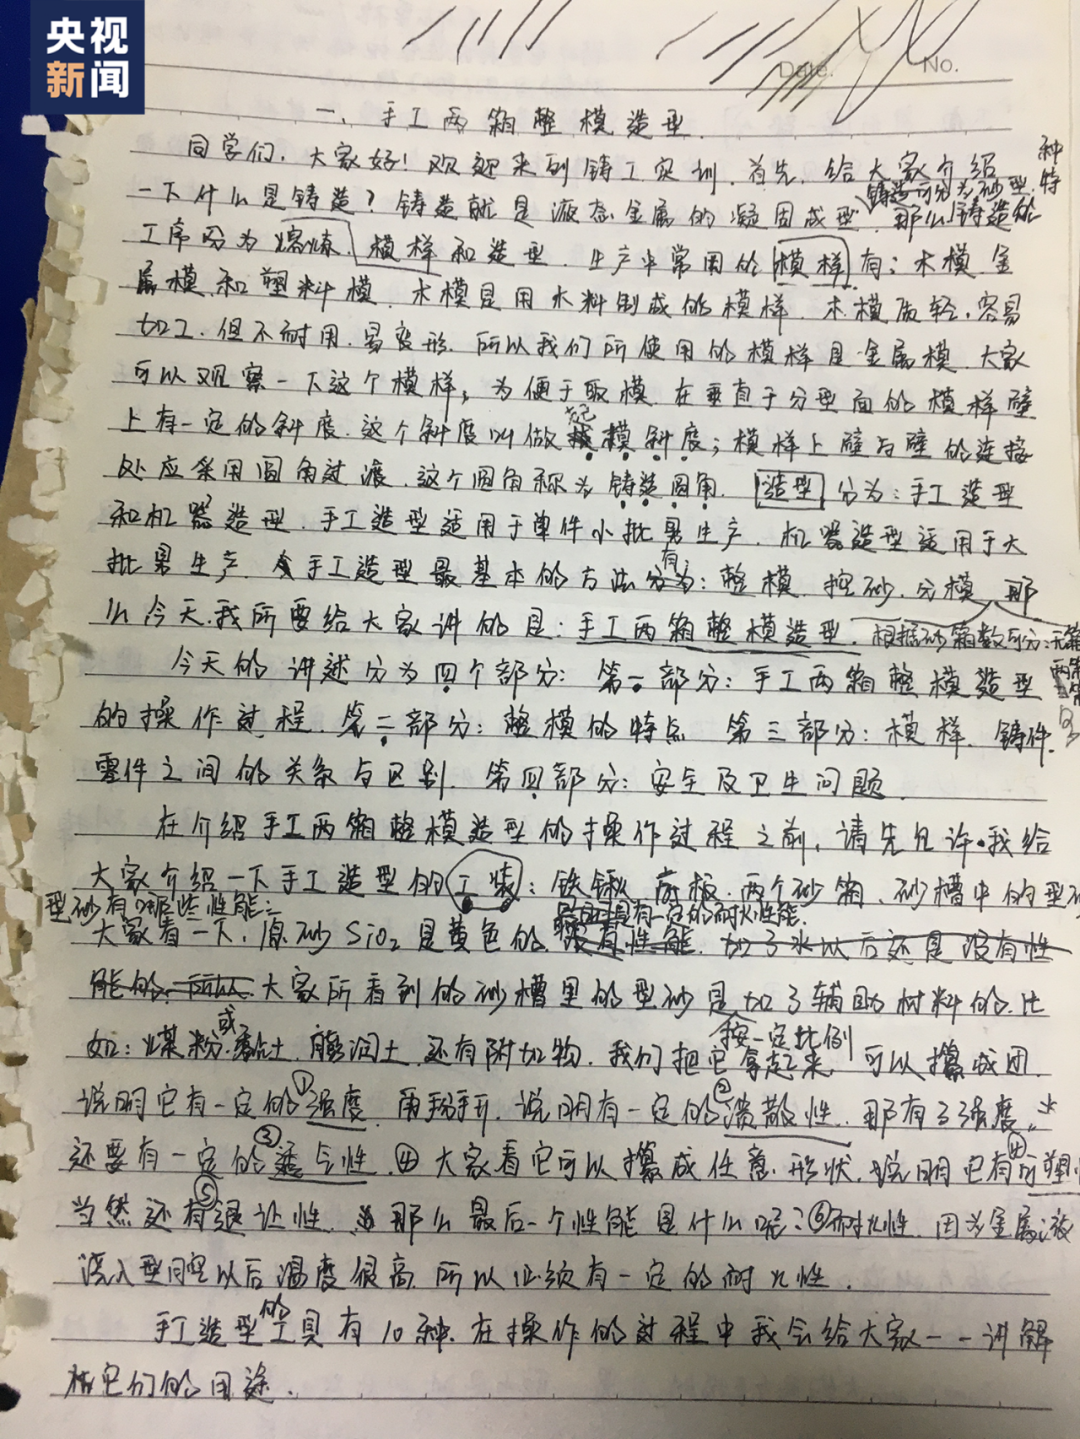 央视
新闻
Date.
No.
一、手工两箱整模造型.
同学们,大家好!欢迎来到铸工实训.首先,给大家介绍
一下什么是铸造?铸造就是液态金属的凝固成型.铸造可分为砂型.特种 那么铸造的
工序分为熔炼.模样和造型.生产中常用的模样有:木模.金
属模和塑料模.木模是用木料制成的模样.木模质轻.容易
加工.但不耐用.易变形.所以我们所使用的模样是金属模.大家
可以观察一下这个模样,为便于取模.在垂直于分型面的模样壁
上有一定的斜度.这个斜度叫做起模斜度;模样上壁与壁的连接
处应采用圆角过渡.这个圆角称为铸造圆角.造型分为:手工造型
和机器造型.手工造型适用于单件小批量生产.机器造型适用于大
批量生产.手工造型最基本的方法有:整模.挖砂.分模.那
么今天.我所要给大家讲的是:手工两箱整模造型.根据砂箱数可分:无箱
两箱
今天的讲述分为四个部分:第一部分:手工两箱整模造型
的操作过程.第二部分:整模的特点 第三部分:模样.铸件.
零件之间的关系与区别.第四部分:安全及卫生问题.
在介绍手工两箱整模造型的操作过程之前,请先允许我给
大家介绍一下手工造型的工装:铁锹.底板.两个砂箱、砂槽中的型砂
型砂有哪些性能:
大家看一下,原砂SiO₂是黄色的 具有一定的耐火性能. 没有性能.加了水以后还是没有性
能的.所以.大家所看到的砂槽里的型砂是加了辅助材料的.比
如:煤粉.或黏土.膨润土.还有附加物.按一定比例
我们把它拿起来 可以攥成团.
说明它有一定的①强度.再掰开.说明有一定的②溃散性.那有了强度.
还要有一定的③透气性.④大家看它可以攥成任意形状.说明它有④可塑性
当然还有⑤退让性.那么最后一个性能是什么呢?⑥耐火性.因为金属液
浇入型腔以后温度很高.所以必须有一定的耐火性.
手工造型的工具有10种.在操作的过程中我会给大家一一讲解
它们的用途.